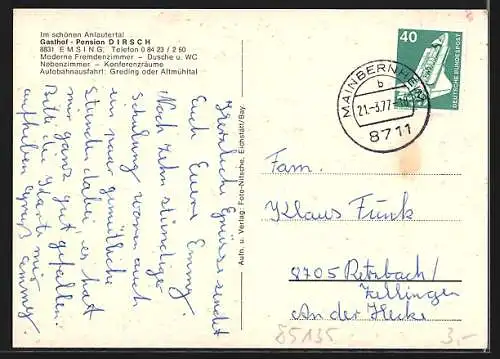 Im schönen Anlautertal
Gasthof - Pension DIRSCH
8831 EMSING, Telefon 0 84 23 / 2 60
Moderne Fremdenzimmer — Dusche u. WC
Nebenzimmer — Konferenzräume
Autobahnausfahrt: Greding oder Altmühltal
Herzliche Grüsse sendet
Euch Eure Emmy
Noch zehn stündiger
Schulung waren auch
ein paar gemütliche
Stunden dabei, es hat
mir ganz gut gefallen.
Bitte die Karte mir
aufheben Gruß Emmy
Aufn. u. Verlag: Foto-Nitsche, Eichstätt/Bay.
40
DEUTSCHE BUNDESPOST
MAINBERNHEIM
b
21.-3.77
8711
Fam.
Klaus Funk
8705 Retzbach/
Zellingen
An der Hecke
85135
3,-